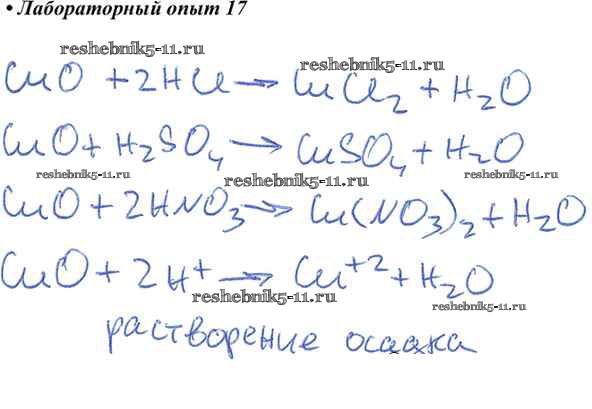 • Лабораторный опыт 17
reshebnik5-11.ru
reshebnik5-11.ru
CuO + 2HCl → CuCl₂ + H₂O
CuO + H₂SO₄ → CuSO₄ + H₂O
reshebnik5-11.ru
reshebnik5-11.ru
reshebnik5-11.ru
CuO + 2HNO₃ → Cu(NO₃)₂ + H₂O
CuO + 2H⁺ → Cu⁺² + H₂O
reshebnik5-11.ru
reshebnik5-11.ru
растворение осадка